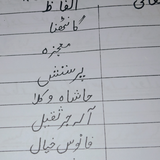 الفاظ
گانٹھنا
معجزہ
پرستش
حاشاہ وکلا
آلہ جرثقیل
فانوس خیال